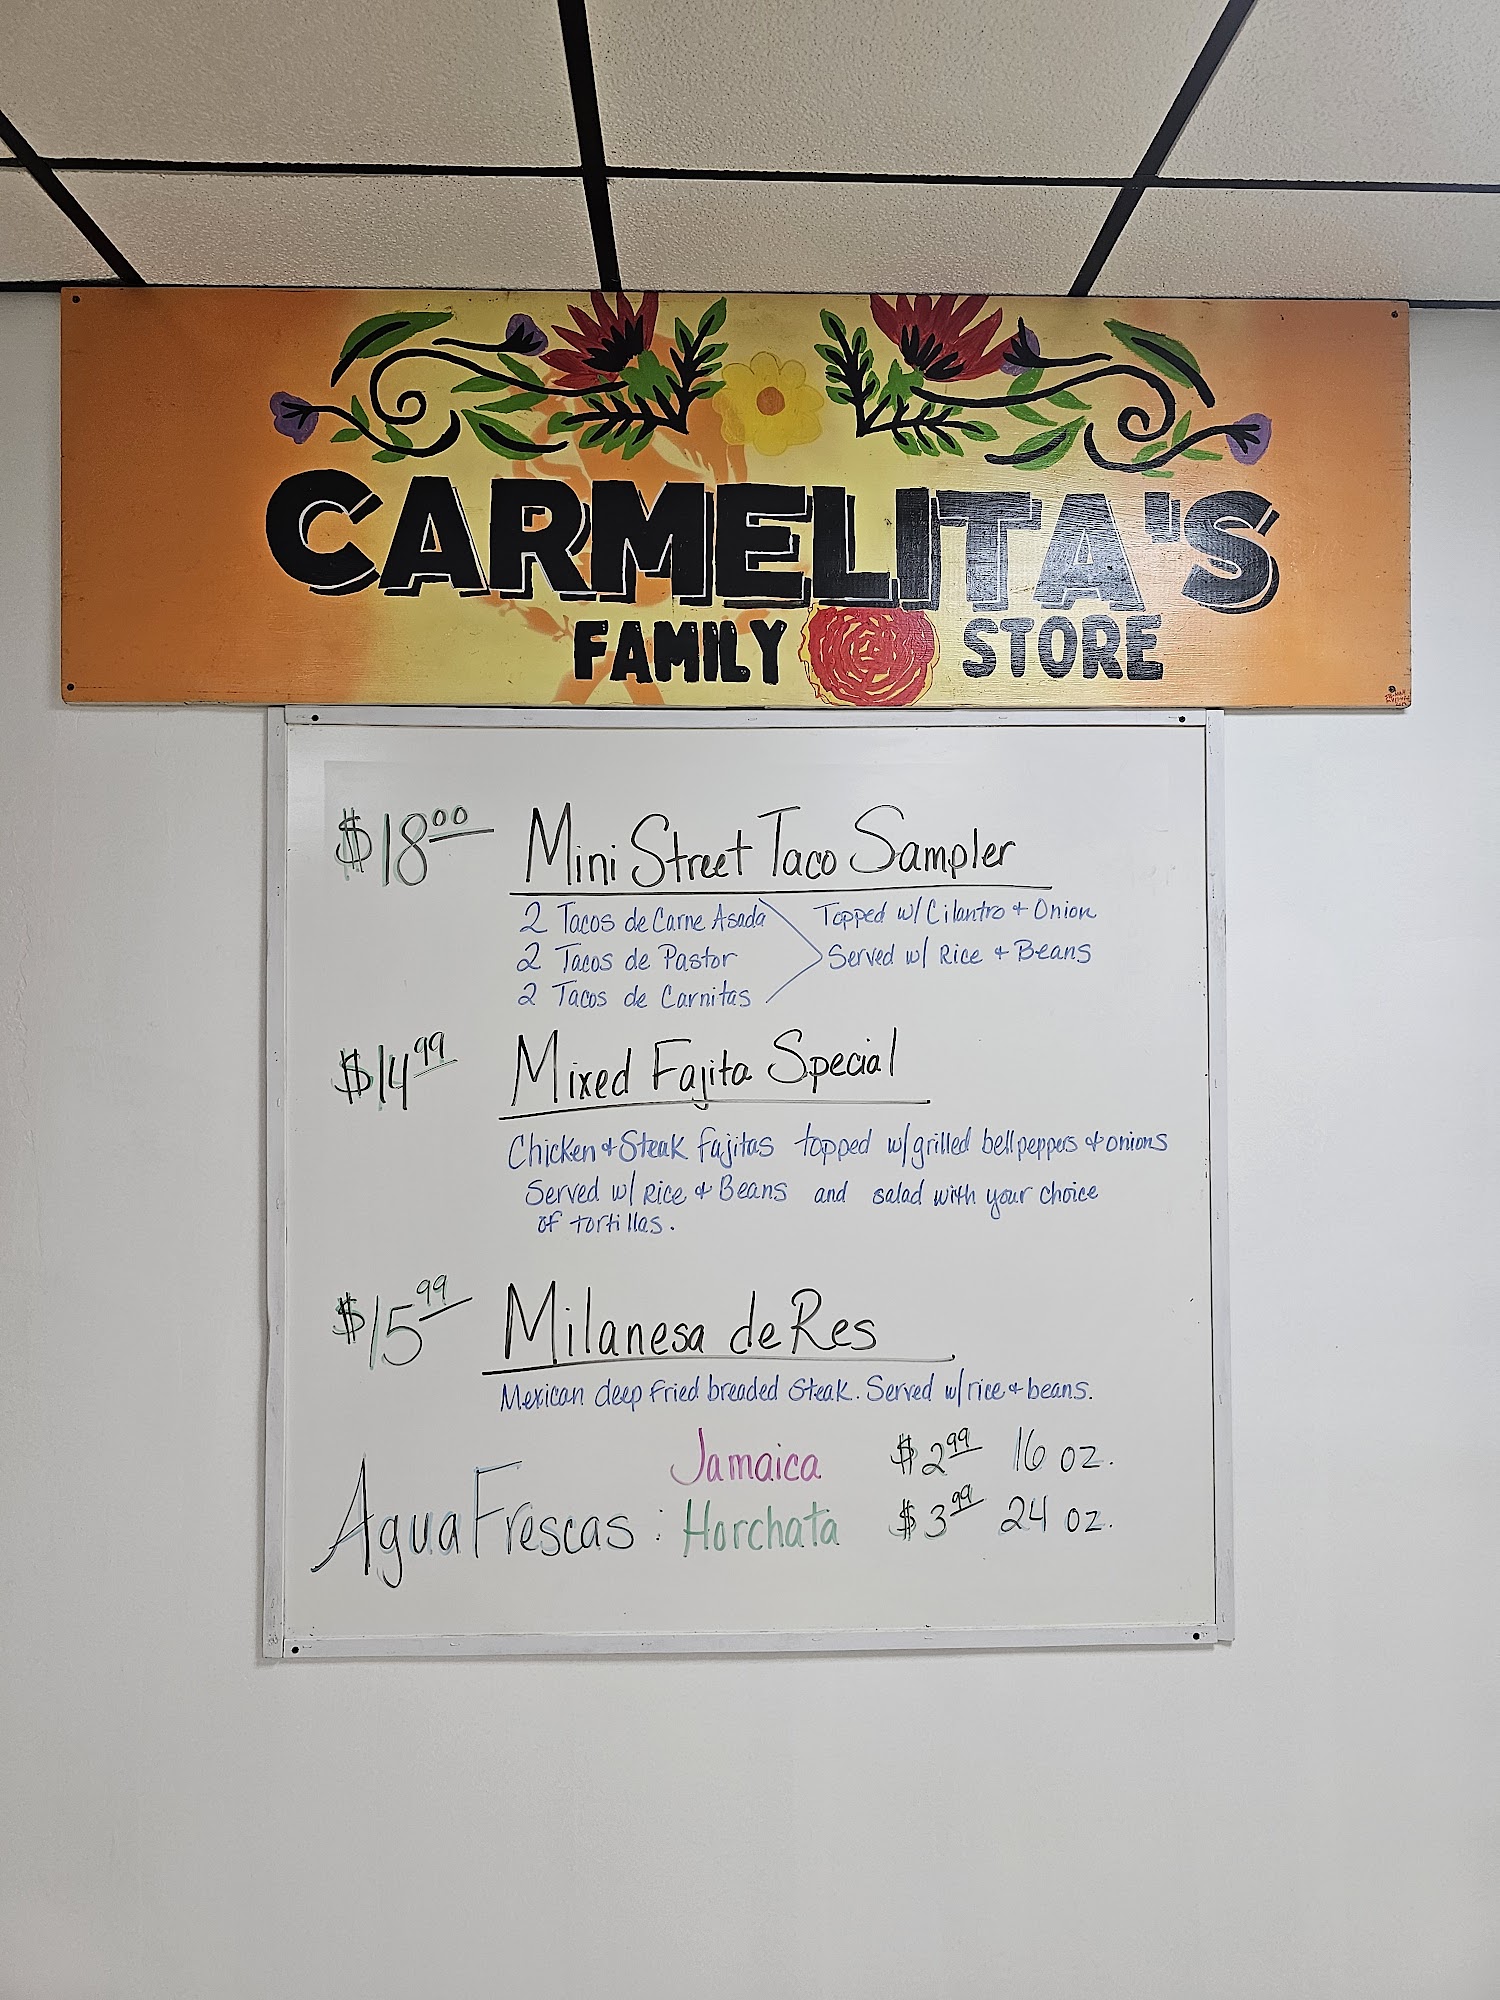 CARMELITA'S
FAMILY STORE
$18.00 Mini Street Taco Sampler
2 Tacos de Carne Asada Topped w/ Cilantro + Onion
2 Tacos de Pastor Served w/ Rice + Beans
2 Tacos de Carnitas
$14.99 Mixed Fajita Special
Chicken + Steak fajitas topped w/ grilled bell peppers + onions
Served w/ Rice + Beans and salad with your choice
of tortillas.
$15.99 Milanesa de Res
Mexican deep fried breaded steak. Served w/ rice + beans.
Jamaica $2.99 16 oz.
Agua Frescas: Horchata $3.99 24 oz.